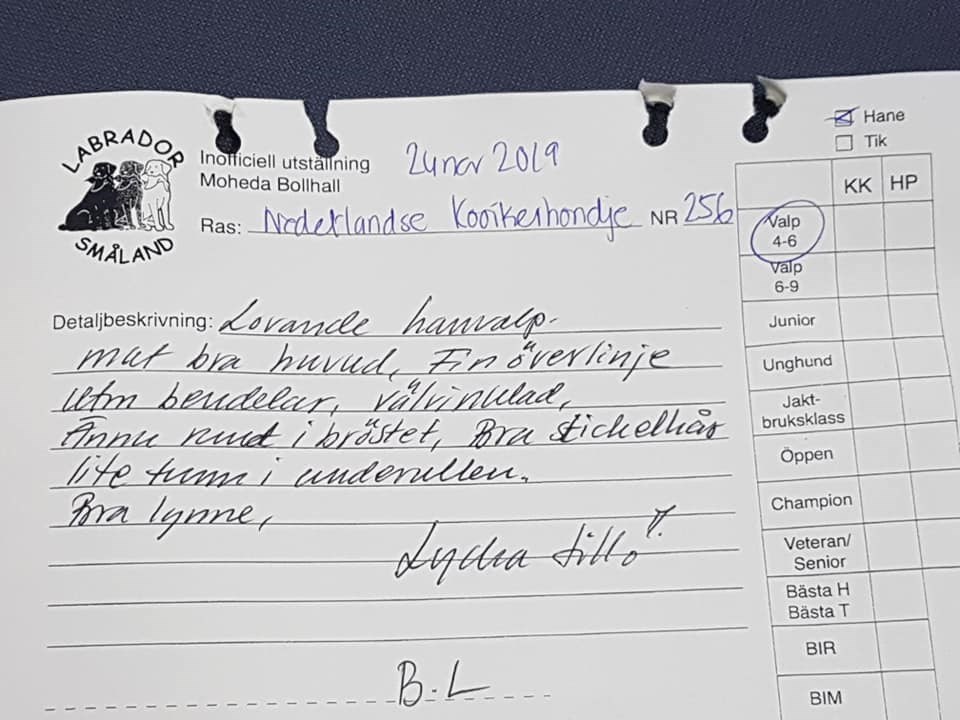 LABRADOR
SMÅLAND
Inofficiell utställning 24 nov 2019
Moheda Bollhall
Ras: Nederlandse Kooikerhondje NR 256
Hane
Tik
KK HP
Valp
4-6
Valp
6-9
Junior
Unghund
Jakt-
bruksklass
Öppen
Champion
Veteran/
Senior
Bästa H
Bästa T
BIR
BIM
Detaljbeskrivning: Lovande hanvalp.
mkt bra huvud, Fin överlinje
utm bendelar, välvinklad,
Ännu rund i bröstet, Bra stickelhår
lite tunn i underullen.
Bra lynne,
B.L